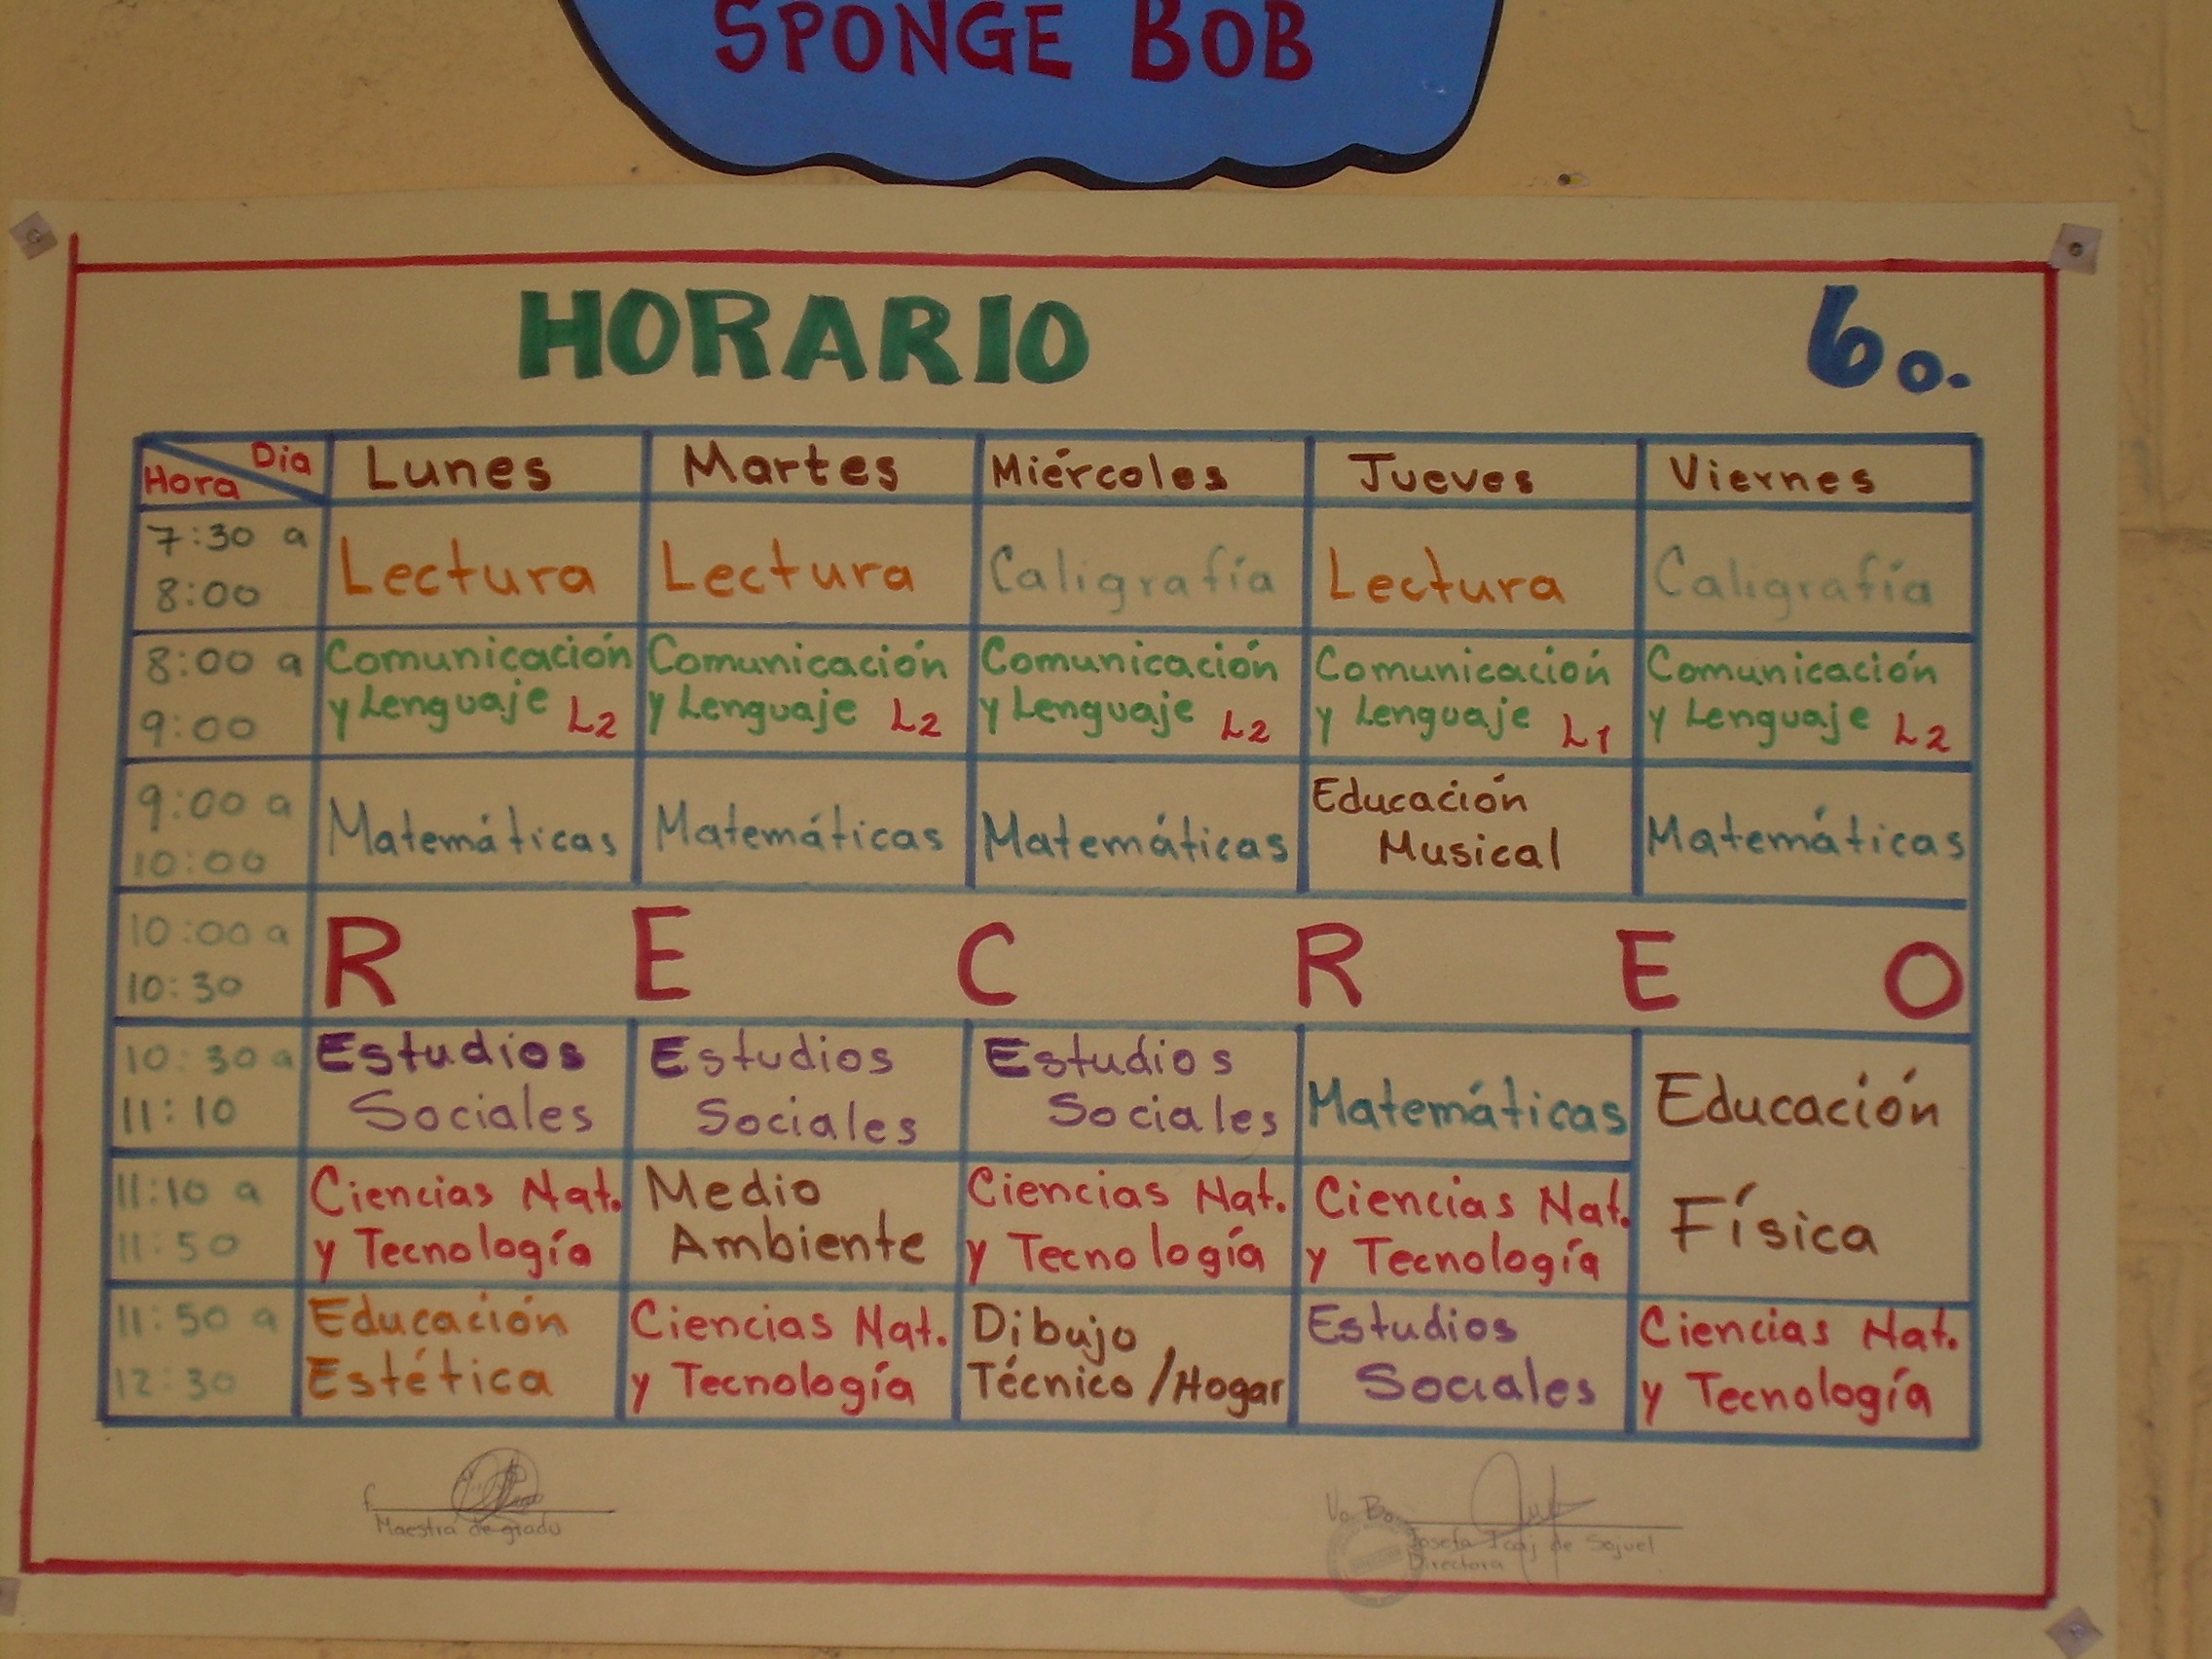 SPONGE BOB
HORARIO 6o.
Dia
Hora Lunes Martes Miércoles Jueves Viernes
7:30 a
8:00 Lectura Lectura Caligrafía Lectura Caligrafía
8:00 a Comunicación Comunicación Comunicación Comunicación Comunicación
9:00 y Lenguaje L2 y Lenguaje L2 y Lenguaje L2 y Lenguaje L1 y Lenguaje L2
9:00 a Educación
10:00 Matemáticas Matemáticas Matemáticas Musical Matemáticas
10:00 a
10:30 R E C R E O
10:30 a Estudios Estudios Estudios Matemáticas Educación
11:10 Sociales Sociales Sociales
11:10 a Ciencias Nat. Medio Ciencias Nat. Ciencias Nat. Física
11:50 y Tecnología Ambiente y Tecnología y Tecnología
11:50 a Educación Ciencias Nat. Dibujo Estudios Ciencias Nat.
12:30 Estética y Tecnología Técnico/Hogar Sociales y Tecnología
f.
Maestra de grado
Vo. Bo.
Josefa de Sojuel
Directora